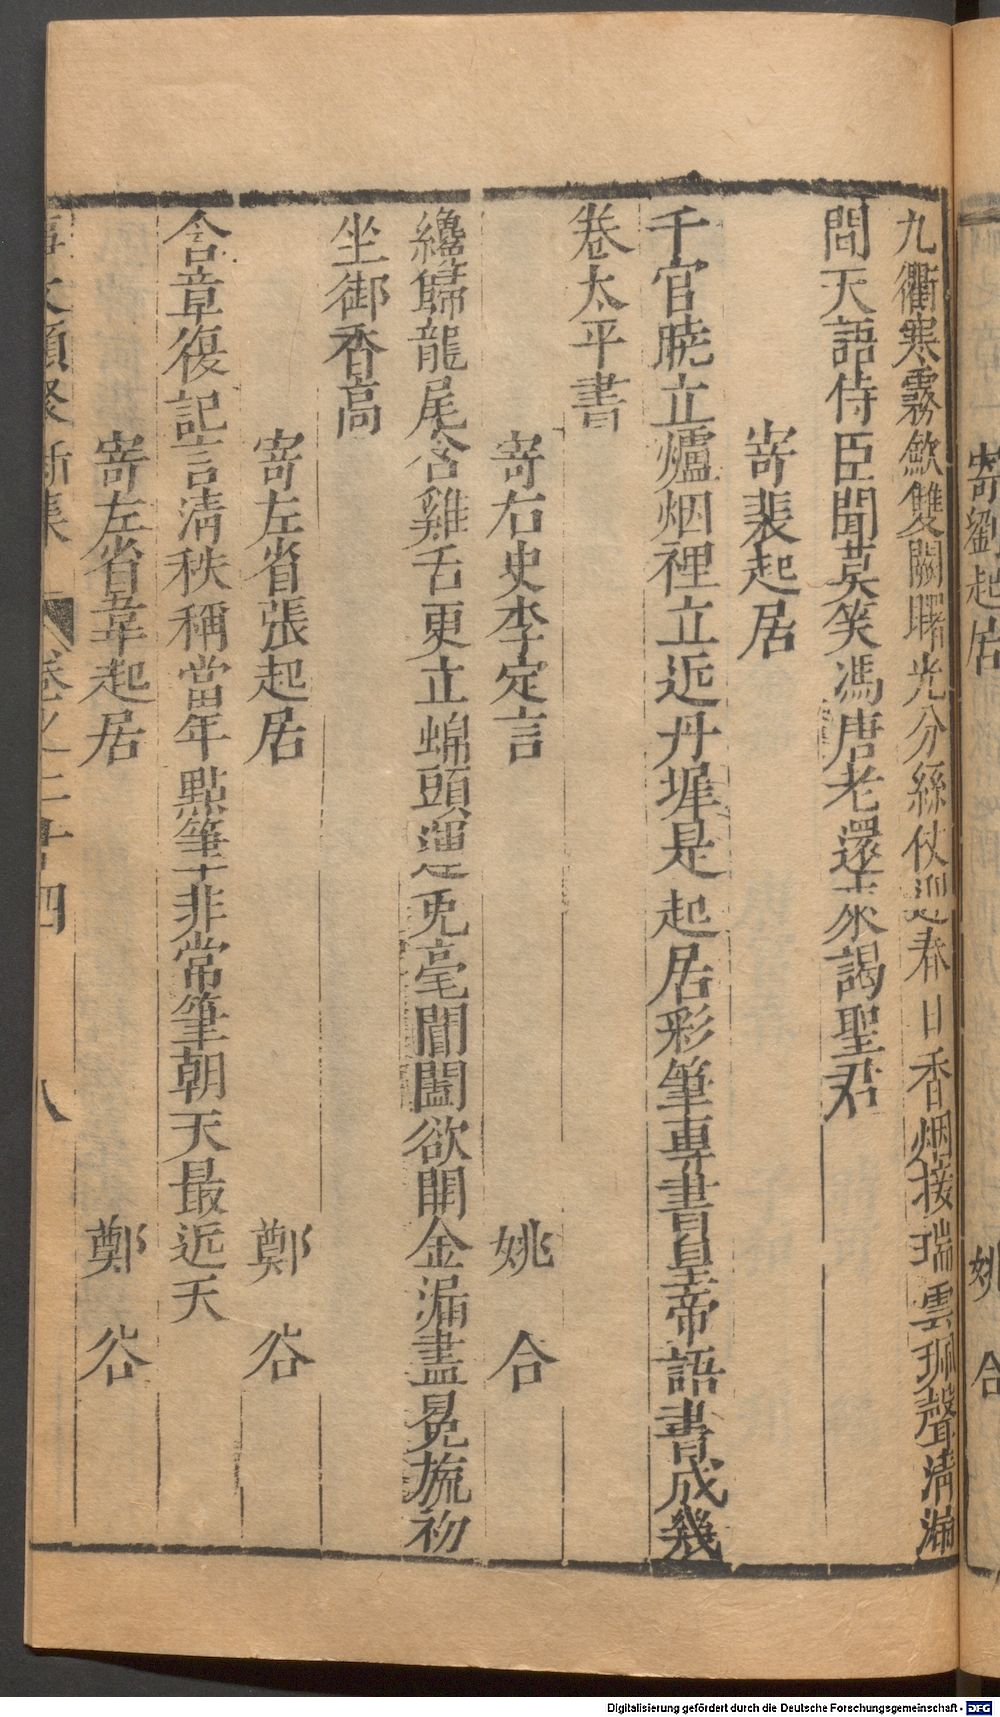 寄劉起居　姚合
九衢寒霧歛雙闕曙光分綵仗迎春日香烟接瑞雲珮聲清漏
間天語侍臣聞莫笑馮唐老還來謁聖君
寄裴起居
千官曉立爐烟裡立近丹墀是起居彩筆專書皇帝語書成幾
卷太平書
寄右史李定言　姚合
纔歸龍尾含雞舌更立螭頭運兎毫閶闔欲開金漏盡冕旒初
坐御香高
寄左省張起居　鄭谷
含章復記言清秩稱當年點筆非常筆朝天最近天
寄左省韋起居　鄭谷
事文類聚新集　卷之二十四　八
Digitalisierung gefördert durch die Deutsche Forschungsgemeinschaft - DFG